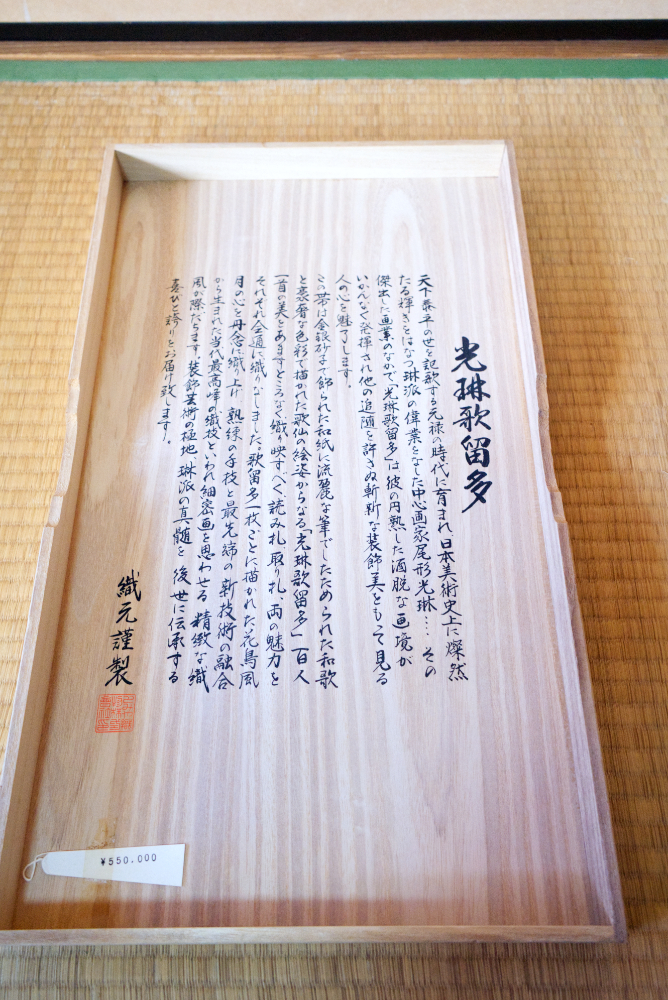 光琳歌留多
天下泰平の世を謳歌する元禄の時代に育まれ、日本美術史上に燦然
たる輝きをはなつ琳派の偉業をなした中心画家尾形光琳……その
傑出した画業のなかで「光琳歌留多」は彼の円熟した洒脱な画境が
いかんなく発揮され他の追随を許さぬ斬新な装飾美をもって見る
人の心を魅了します。
この帯は金銀砂子で飾られた和紙に流麗な筆でしたためられた和歌
と豪奢な色彩で描かれた歌仙の絵姿からなる「光琳歌留多」百人
一首の美をあますところなく織り映すべく、読み札、取り札、両の魅力を
それぞれ全通に織りなしました。歌留多一枚ごとに描かれた花鳥風
月の心を丹念に織り上げ、熟練の手技と最先端の新技術の融合
から生まれた当代最高峰の織技といわれ細密画を思わせる精緻な織
風が際だちます。装飾芸術の極地、琳派の真髄を後世に伝承する
喜びと誇りとお届け致します。
織元謹製
¥550.000